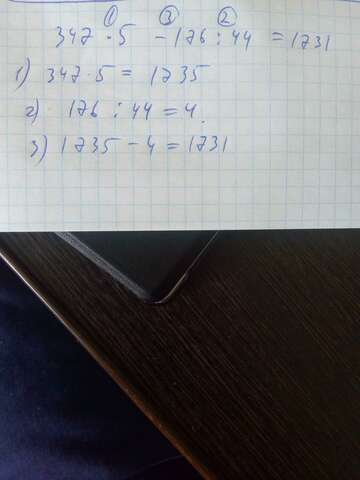 ① ③ ②
347 · 5 - 176 : 44 = 1731
1) 347 · 5 = 1735
2) 176 : 44 = 4.
3) 1735 - 4 = 1731